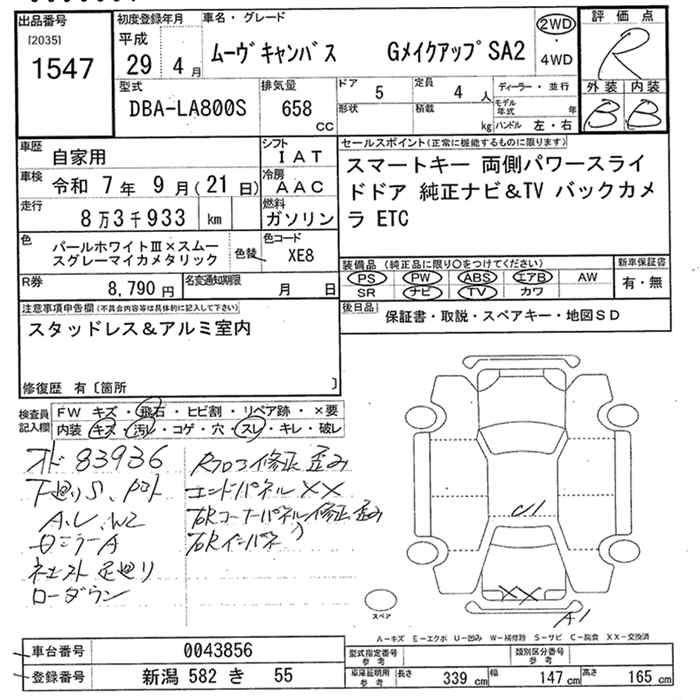 出品番号
[2035]
1547
初度登録年月
平成
29 4月
車名・グレード
ムーヴキャンバス GメイクアップSA2
2WD
・
4WD
評価点
R
外装 内装
B B
型式
DBA-LA800S
排気量
658
CC
ドア 5
形状
定員 4 人
積載 kg
ディーラー・並行
モデル年式 年
ハンドル 左・右
車歴 自家用
シフト IAT
車検 令和 7年 9月(21日)
冷房 AAC
走行 8万3千933 km
燃料 ガソリン
色 パールホワイトⅢ×スムー
スグレーマイカメタリック
色替
色コード XE8
R券 8,790円
名変通知期限 月 日
セールスポイント(正常に機能するものに限ります)
スマートキー 両側パワースライ
ドドア 純正ナビ&TV バックカメ
ラ ETC
装備品(純正品に限り○をつけてください)
PS PW ABS エアB AW
SR ナビ TV カワ
新車保証書
有・無
後日品 保証書・取説・スペアキー・地図SD
注意事項申告欄(不具合内容等は具体的に記入して下さい)
スタッドレス&アルミ室内
修復歴 有〔箇所 〕
検査員記入欄
FW キズ・飛石・ヒビ割・リペア跡・×要
内装 キズ・汚レ・コゲ・穴・スレ・キレ・破レ
83936
下廻りS
A.U.W2
A
足廻り
ローダウン
修正 歪み
エンドパネル XX
右Rコーナーパネル修正歪み
右Rインパネ
U1
XX
A1
スペア
A—キズ E—エクボ U—凹み W—補修跡 S—サビ C—腐食 XX—交換済
車台番号 0043856
登録番号 新潟 582 き 55
型式指定番号
参考
類別区分番号
参考
車庫証明用
参考
長さ 339 cm 幅 147 cm 高さ 165 cm